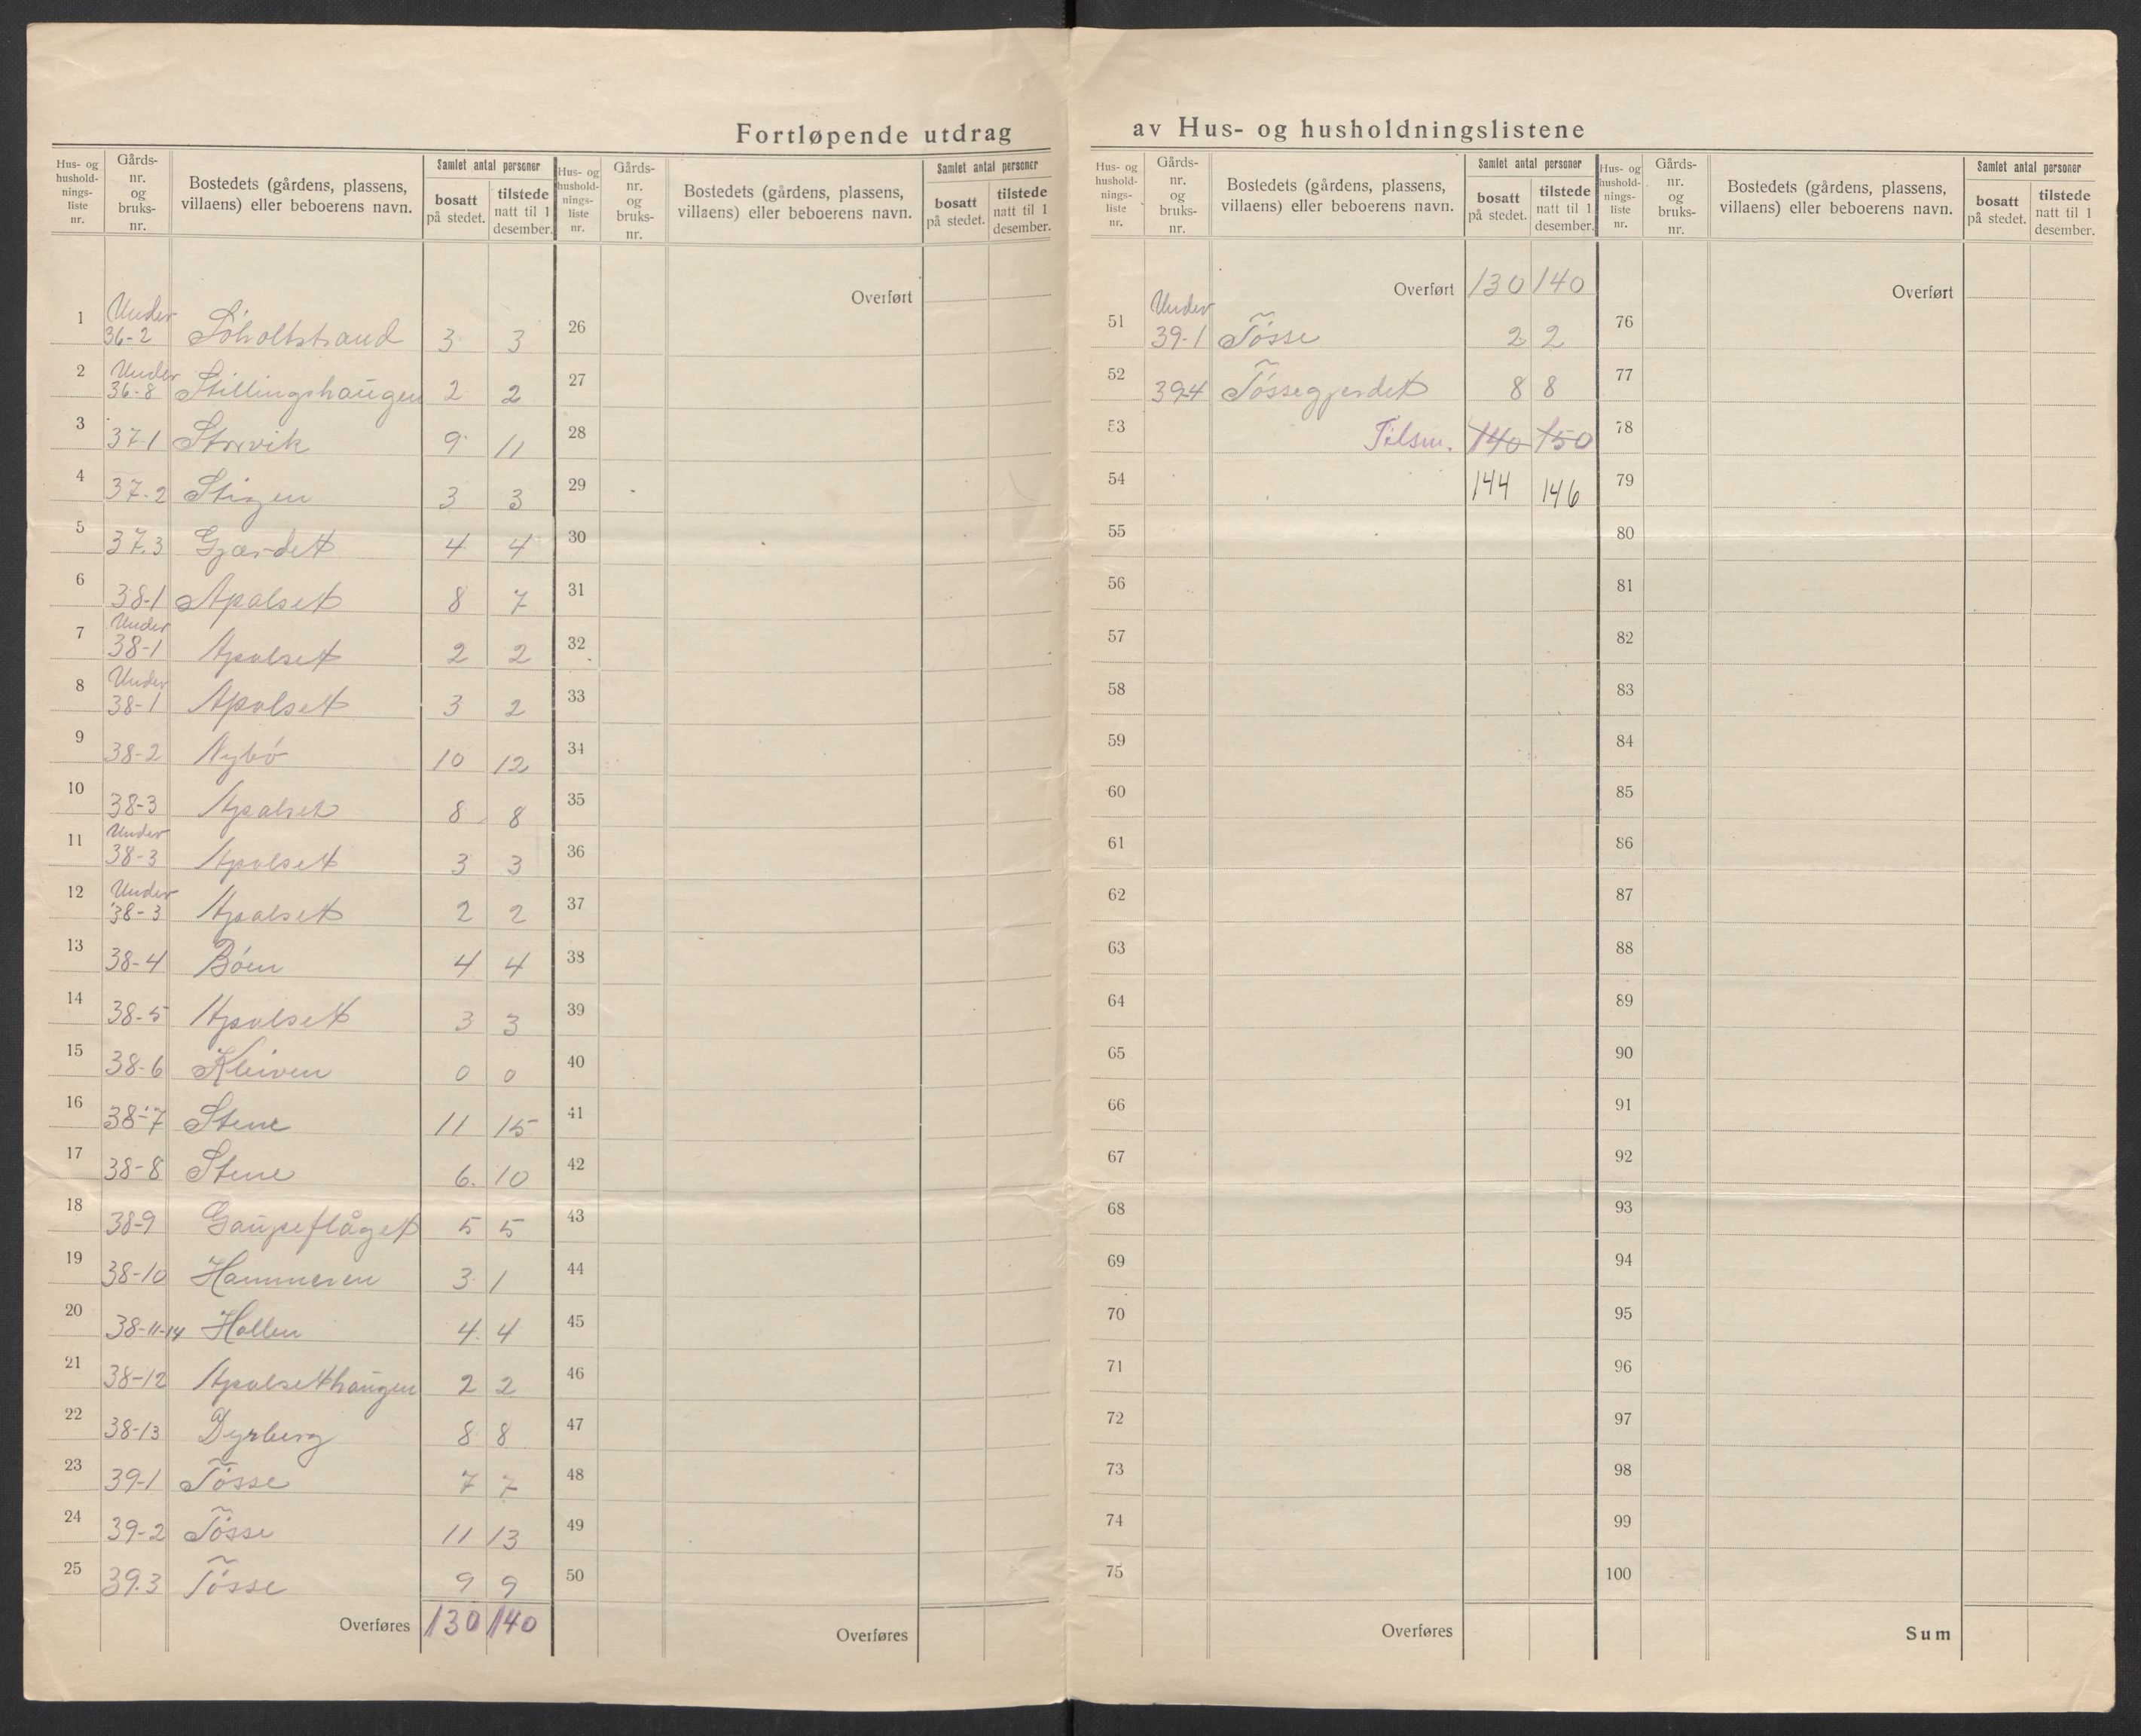 Fortløpende utdrag av Hus- og husholdningslistene
Hus- og hushold-nings-liste nr. Gårds-nr. og bruks-nr. Bostedets (gårdens, plassens, villaens) eller beboerens navn. Samlet antal personer bosatt på stedet. tilstede natt til 1 desember.
1 Under 36-2 Söholtstrand 3 3
2 Under 36-8 Stillingshaugen 2 2
3 37-1 9 11
4 37-2 Stigen 3 3
5 37.3 Gjærdet 4 4
6 38-1 Apalset 8 7
7 Under 38-1 Apalset 2 2
8 Under 38-1 Apalset 3 2
9 38-2 Nybö 10 12
10 38-3 Apalset 8 8
11 Under 38-3 Apalset 3 3
12 Under 38-3 Apalset 2 2
13 38-4 Böen 4 4
14 38-5 Apalset 3 3
15 38-6 Kleiven 0 0
16 38-7 Stene 11 15
17 38-8 Stene 6. 10
18 38-9 Gaupeflåget 5 5
19 38-10 Hammeren 3 1
20 38-11-14 Hollen 4. 4
21 38-12 Apalsethaugen 2 2
22 38-13 Dyrberg 8 8
23 39-1 Tösse 7 7
24 39-2 Tösse 11 13
25 39.3 Tösse 9 9
Overføres 130 140
Hus- og hushold-nings-liste nr. Gårds-nr. og bruks-nr. Bostedets (gårdens, plassens, villaens) eller beboerens navn. Samlet antal personer bosatt på stedet. tilstede natt til 1 desember.
Overført
26
27
28
29
30
31
32
33
34
35
36
37
38
39
40
41
42
43
44
45
46
47
48
49
50
Overføres
Hus- og hushold-nings-liste nr. Gårds-nr. og bruks-nr. Bostedets (gårdens, plassens, villaens) eller beboerens navn. Samlet antal personer bosatt på stedet. tilstede natt til 1 desember.
Overført 130 140
51 Under 39-1 Tösse 2 2
52 39-4 Tössegjerdet 8 8
53 Tilsm. 140 150
54 144 146
55
56
57
58
59
60
61
62
63
64
65
66
67
68
69
70
71
72
73
74
75
Overføres
Hus- og hushold-nings-liste nr. Gårds-nr. og bruks-nr. Bostedets (gårdens, plassens, villaens) eller beboerens navn. Samlet antal personer bosatt på stedet. tilstede natt til 1 desember.
Overført
76
77
78
79
80
81
82
83
84
85
86
87
88
89
90
91
92
93
94
95
96
97
98
99
100
Sum